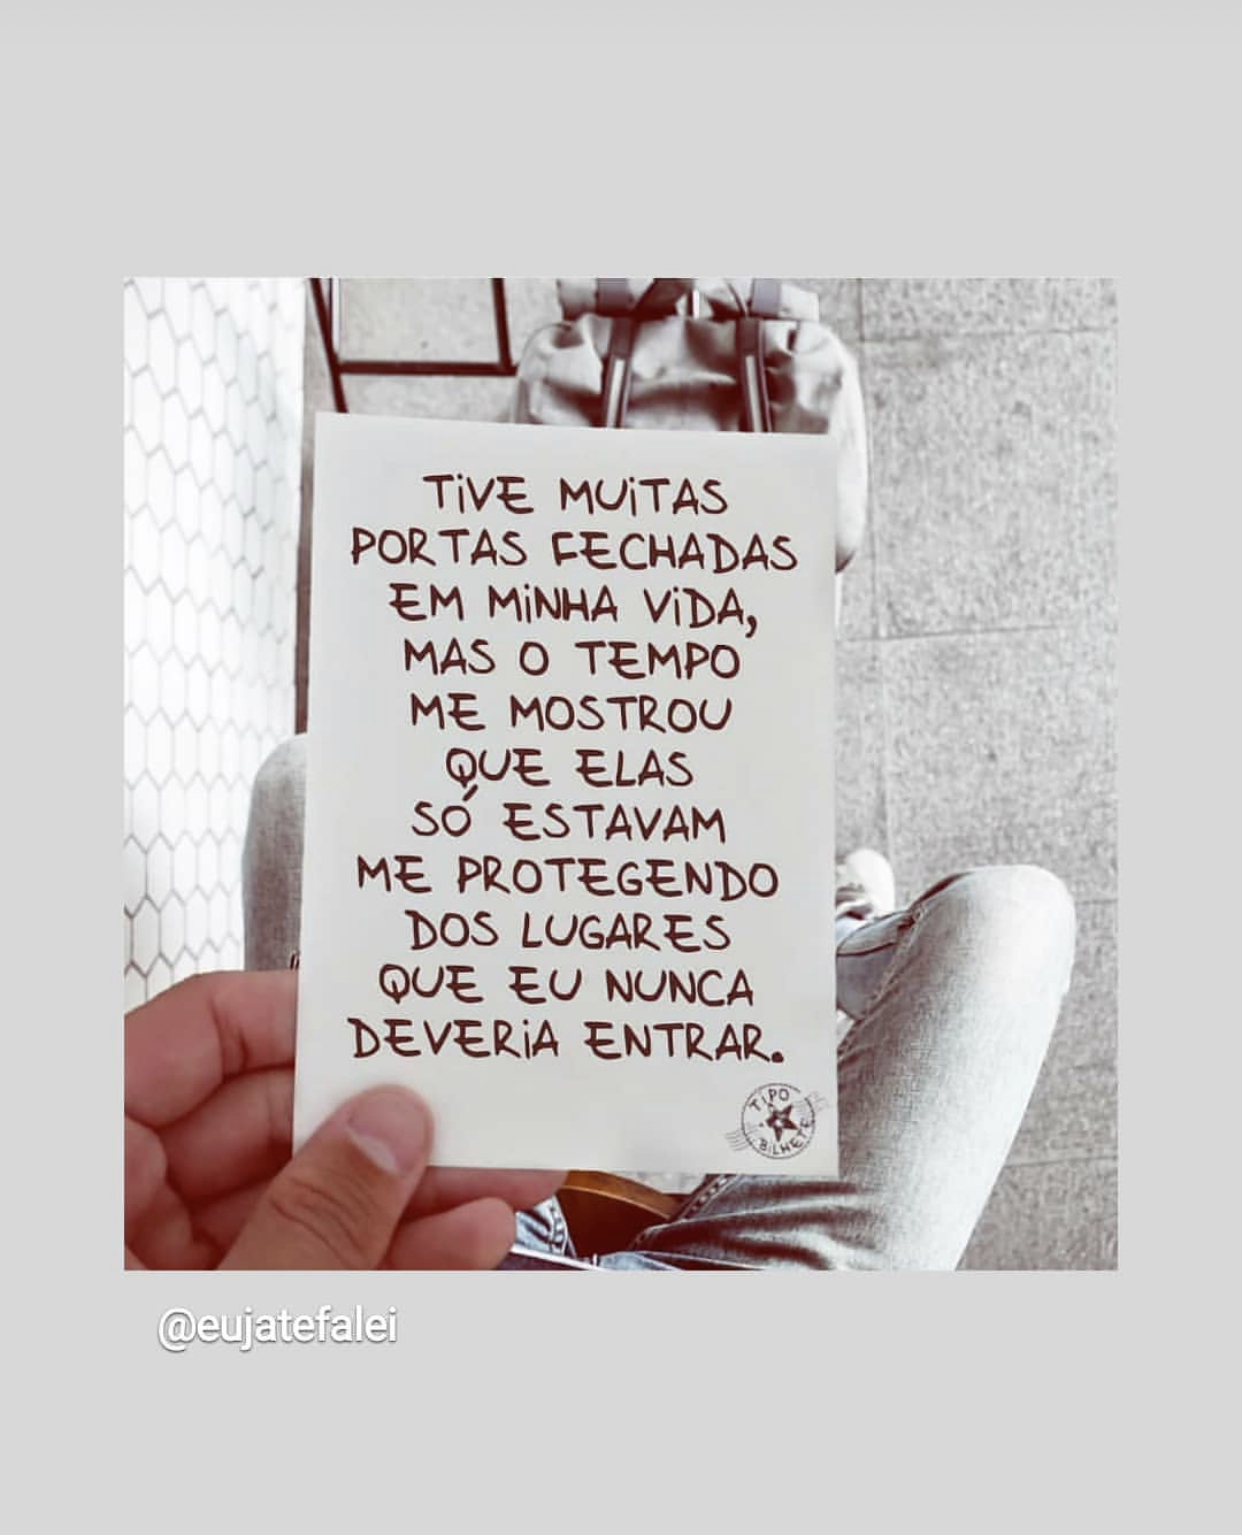 TiVE MUiTAS
PORTAS FECHADAS
EM MiNHA ViDA,
MAS O TEMPO
ME MOSTROU
QUE ELAS
SÓ ESTAVAM
ME PROTEGENDO
DOS LUGARES
QUE EU NUNCA
DEVERiA ENTRAR.
TIPO
BILHETE
@eujatefalei